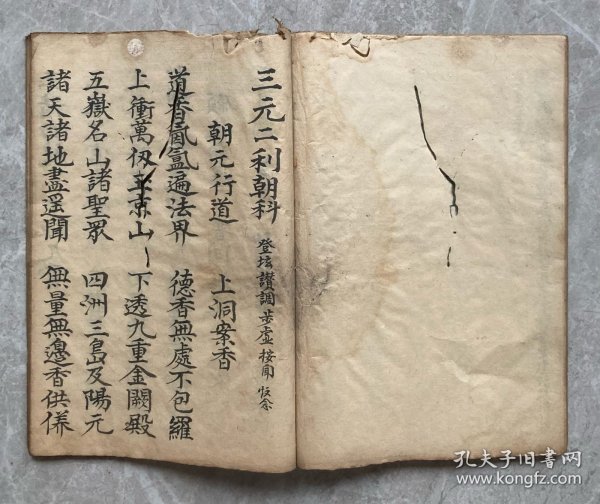 三元二利朝科 登坛讚調步虚 按聞
朝元行道 上洞案香
道香氤氲遍法界 德香無處不包羅
上衝萬仭玉京山 下透九重金闕殿
五嶽名山諸聖眾 四洲三島及陽元
諸天諸地盡遥聞 無量無邊香供养
孔夫子旧书网
www.kongfz.com